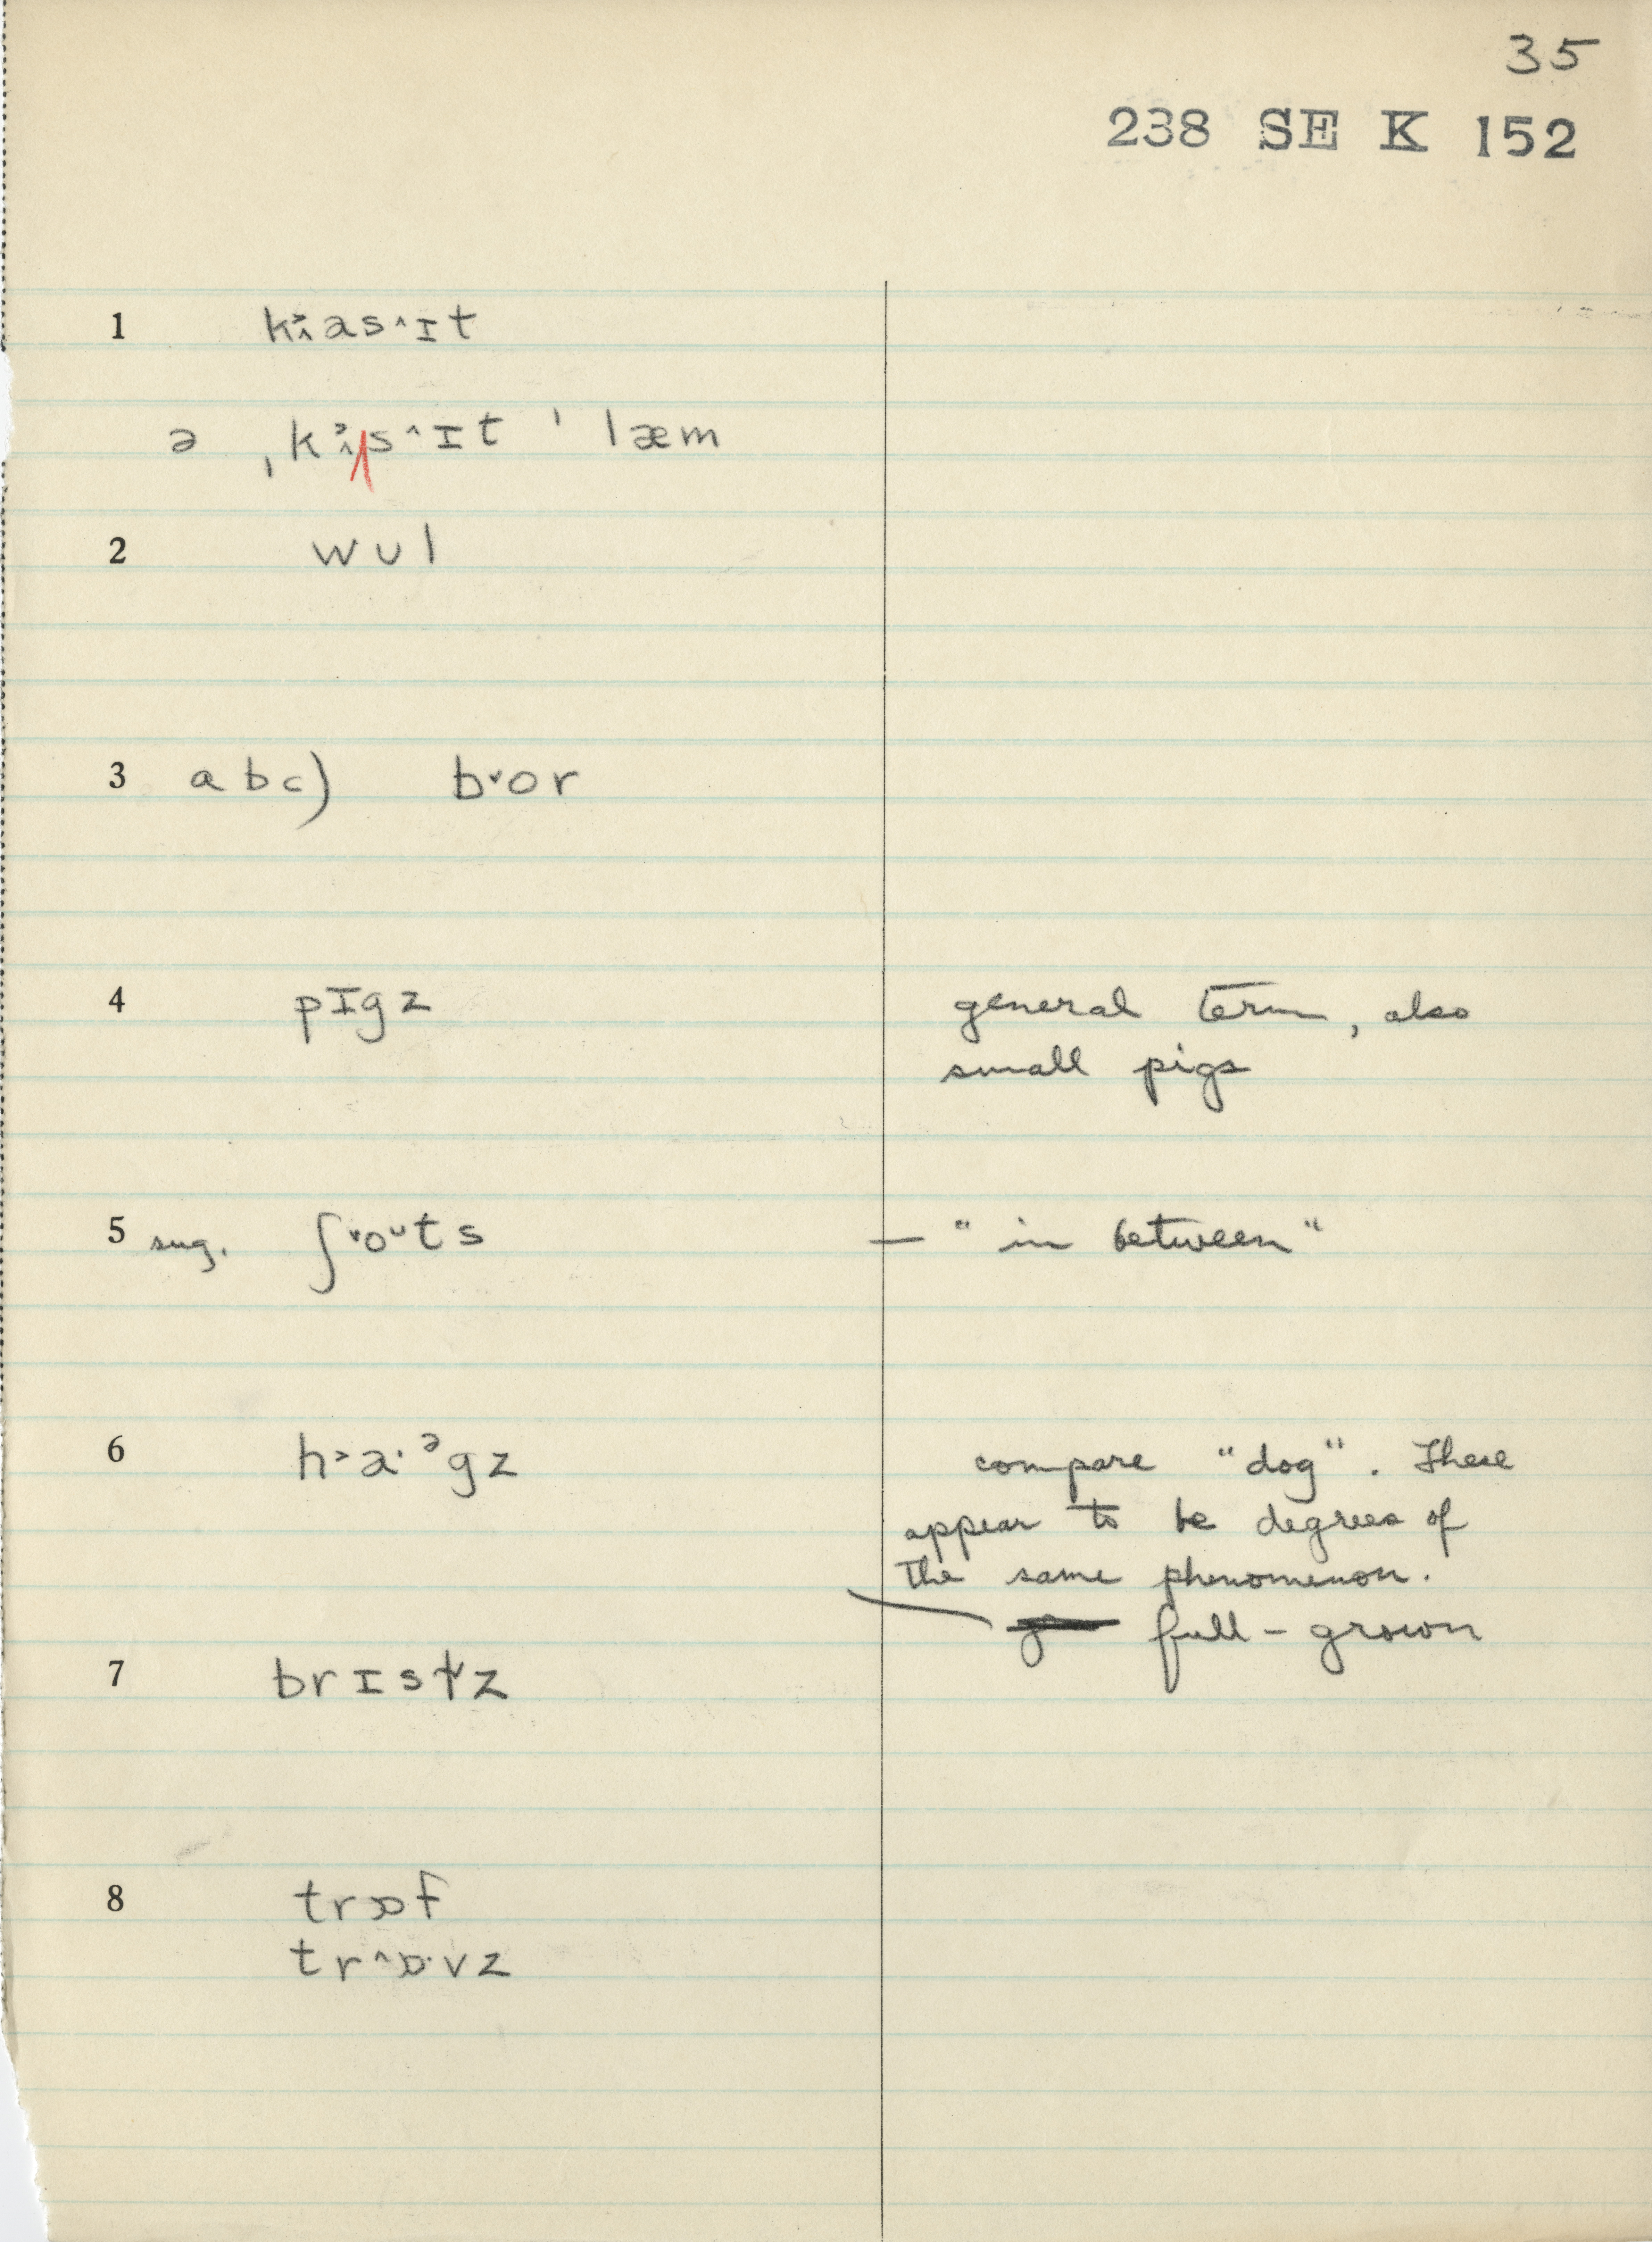 35
238 SE K 152
1 k˃ʌas˄ɪt
ə ˌk˃ʌs˄ɪt ˈlæm
2 wʊl
3 abc) b˅or
4 pɪgz general term, also
small pigs
5 sug. ʃ˅oᵘts — "in between"
6 h˃a·ᵊgz compare "dog". These
appear to be degrees of
the same phenomenon.
full-grown
7 brɪst˅z
8 trɒf
tr˄ɒ·vz